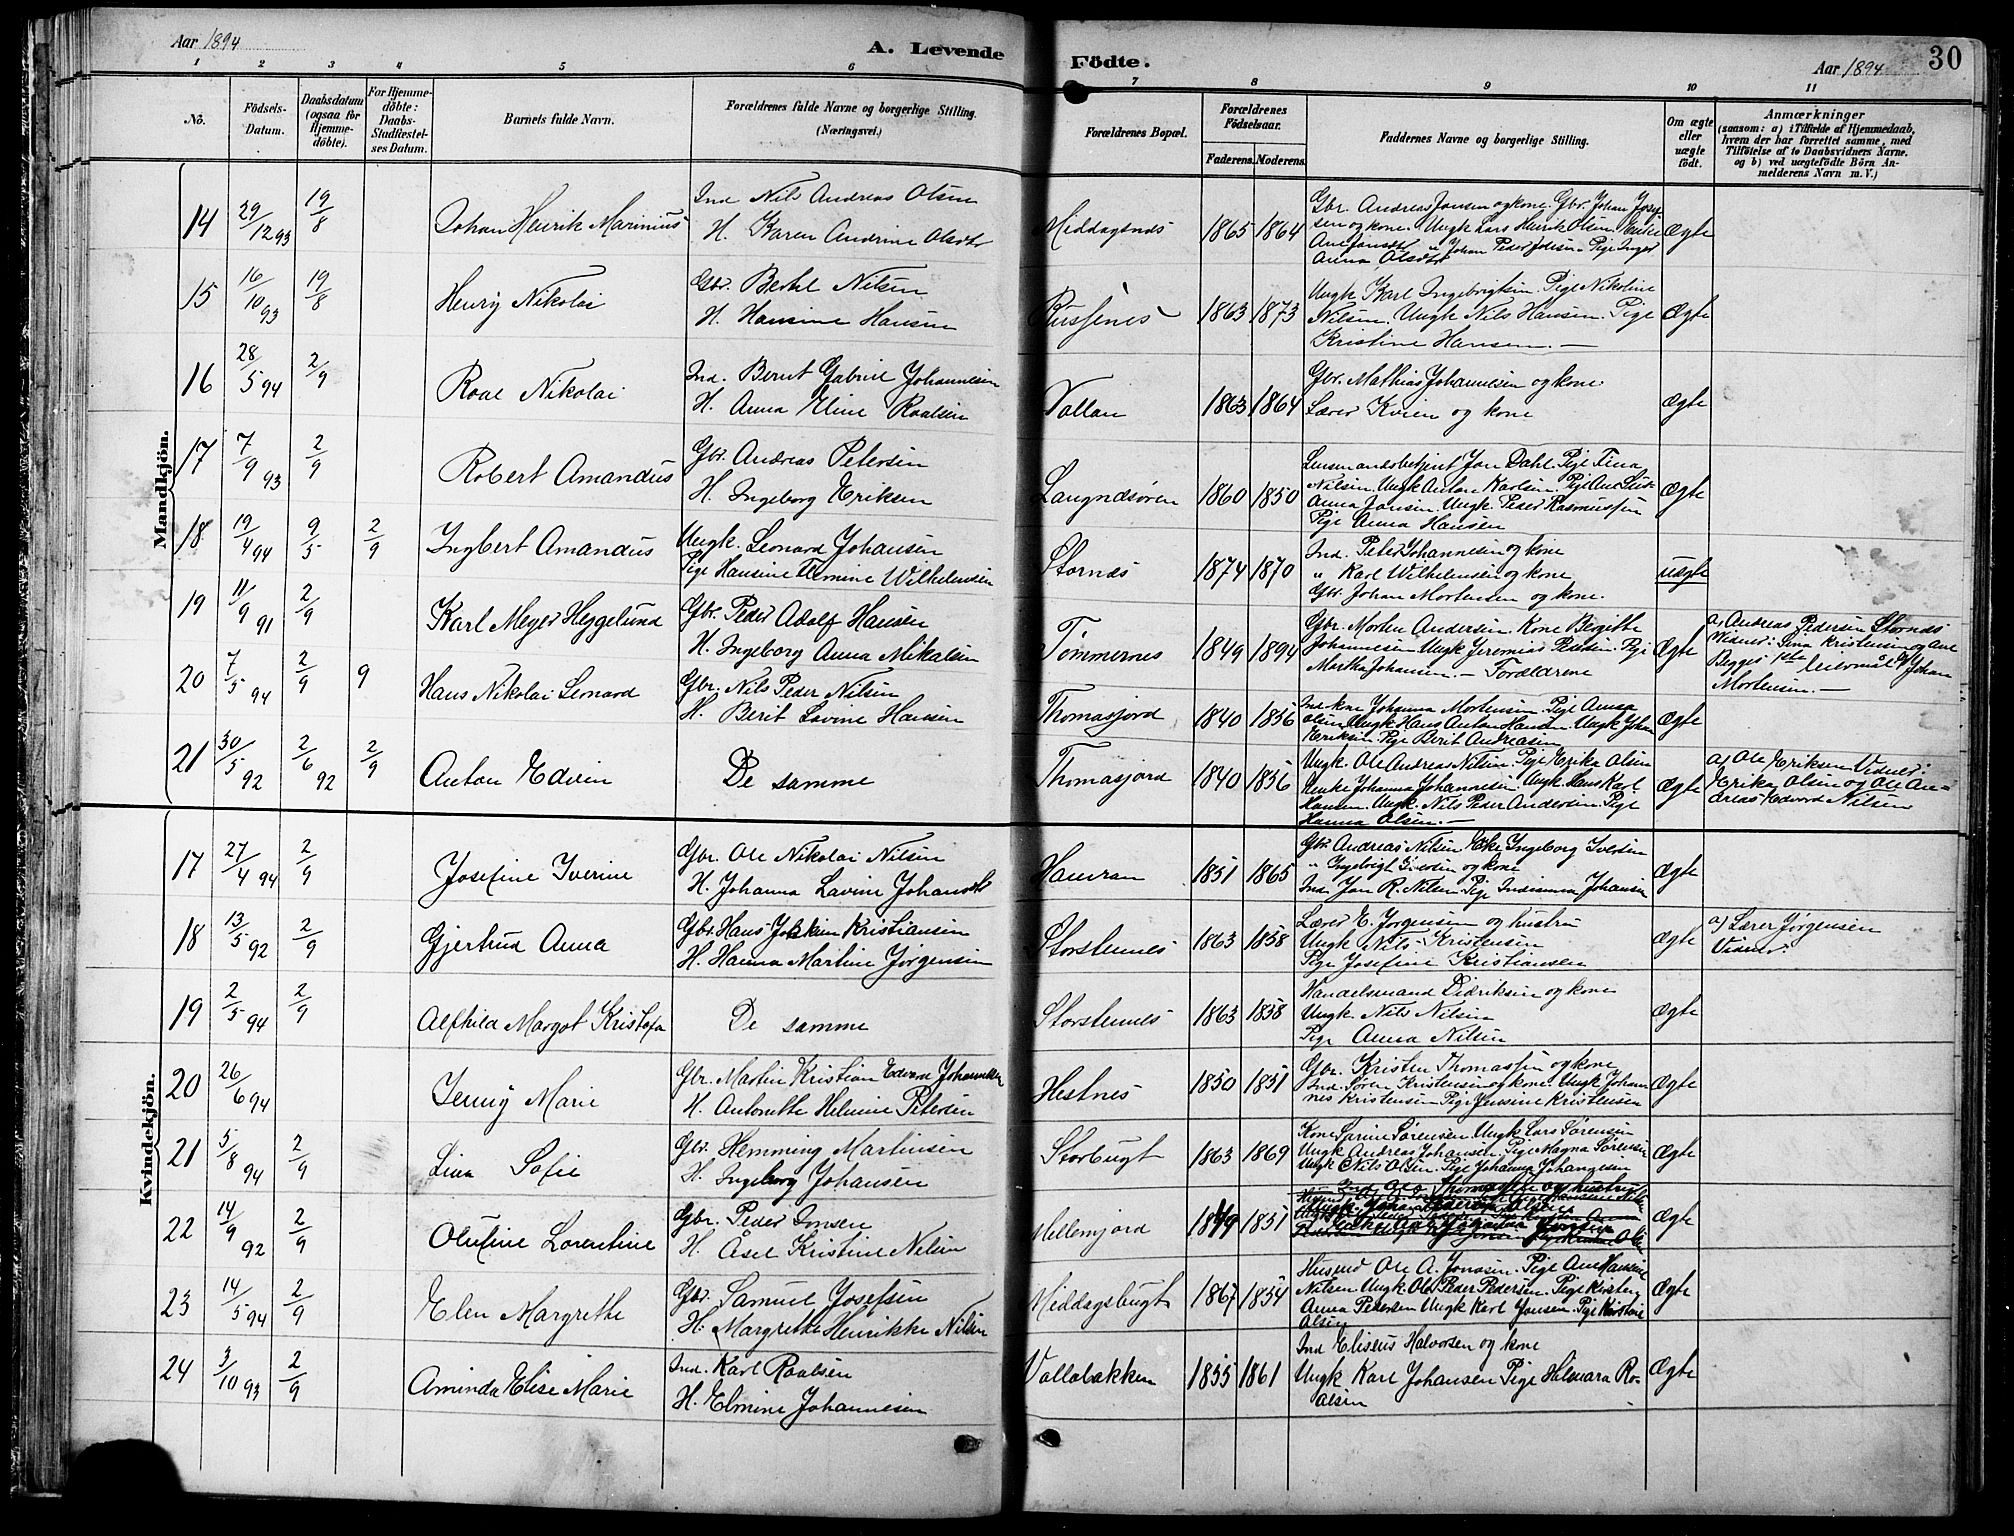 Aar 1894
A. Levende
Födte.
Aar 1894
30
1 2 3 4 5 6 7 8 9 10 11
No.
Födsels-
Datum.
Daabsdatum
(ogsaa for
Hjemme-
döbte).
For Hjemme-
döbte:
Daabs-
Stadfestel-
ses Datum.
Barnets fulde Navn.
Forældrenes fulde Navne og borgerlige Stilling.
(Næringsvei.)
Forældrenes Bopæl.
Forældrenes
Födselsaar.
Faderens. Moderens.
Faddernes Navne og borgerlige Stilling.
Om ægte
eller
uægte
födt.
Anmærkninger
(saasom: a) i Tilfælde af Hjemmedaab,
hvem der har forrettet samme, med
Tilföielse af to Daabsvidners Navne.
og b) ved uægtefödte Börn An-
melderens Navn m. V.)
Mandkjön.
14 29/12 93 19/8 Johan Henrik Marinius
Ind Nils Andreas Olsen
H. Karen Andrine Olsdtr
Middagsnes 1865 1864
Gbr. Andreas Jonsen og kone. Gbr. Johan Josef-
sen og kone. Ungk Lars Henrik Olsen Enke
Ane Jonsdtr Johan Peder Pige Inger
Anna Olsdtr
Ægte
15 16/10 93 19/8 Henrij Nikolai
Gbr. Berhl Nilsen
H. Hansine Hansen
Russenes 1863 1873
Ungk Karl Ingebrigtsen. Pige Nikoline
Nilsen. Ungk Nils Hansen. Pige
Kristine Hansen. —
Ægte
16 28/5 94 2/9 Roal Nikolai
Ind. Bernt Gabriel Johannesen
H. Anna Eline Roalsen
Vollan 1863 1864
Gbr. Mathias Johannesen og kone.
Lærer Kvien og kone
Ægte
17 7/9 93 2/9 Robert Amandus
Gbr. Andreas Petersen
H. Ingeborg Eriksen
Langndsøren 1860 1850
Lensmandsbetjent Jon Dahl. Pige Fina
Nilsen. Ungk Anton Karlsen. Pige
Anna Jonsen. Ungk. Peder Rasmussen
Pige Anna Hansen
Ægte
18 19/4 94 9/5 2/9 Ingbert Amandus
Ungk. Leonard Johansen
Pige Hansine Elmine Wilhelmsen
Stornes 1874 1870
Ind. Peter Johannesen og kone
" Karl Wilhelmsen og kone
Gbr. Johan Mortensen og kone.
uægte
19 11/9 91 2/9 Karl Meyer Heggelund
Gbr. Peder Adolf Hansen
H. Ingeborg Anna Mikalsen
Tømmernes 1849 1894
Gbr. Morten Andersen Kone Birgithe
Johannesen Ungk Jeremias Pige
Martha Johansen. — Forældrene
Ægte
a, Andreas Pedersen Stornes
Vidner: Lina Kristensen og Ane
Begges 1ste leiermål Johan
Mortensen. —
20 7/5 94 2/9 9 Hans Nikolai Leonard
Gbr. Nils Peder Nilsen
H. Berit Lovine Hansen
Thomasjord 1840 1856
Ind. kone Johanna Mortensen Pige Anna
Olsen Ungk Hans Anton Hansen. Ungk Johan
Eriksen Pige Berit Andreasen
Ægte
21 30/5 92 2/6 92 2/9 Anton Edvin
De samme
Thomasjord 1840 1856
Ungk. Ole Andreas Nilsen. Pige Erika Olsen
Enke Johanna Johannesen. Ungk. Hans Karl
Hansen. Ungk. Nils Peder Andersen Pige
Hanna Olsen. —
Ægte
a) Ole Eriksen Vidner:
Erika Olsen og Ole An-
dreas Edvard Nilsen
Kvindekjön.
17 27/4 94 2/9 Josefine Iverine
Gbr. Ole Nikolai Nilsen
H. Johanna Lavine Johansdtr
Hamran 1851 1865
Gbr Andreas Nilsen Enke Ingeborg Iversen
" Ingebrigt Iversen og kone
Ind. Jon R. Nilsen Pige Johansen
Ægte
18 13/5 92 2/9 Gjertrud Anna
Gbr. Hans Joakim Kristiansen
H. Hanna Martine Jørgensen
Storstennes 1863 1858
Lærer E. Jørgensen og hustru
Ungk Nils Kristensen
Pige Josefine Kristiansen
Ægte
a) Lærer Jørgensen
Vidner:
19 2/5 94 2/9 Alfhild Margot Kristofa
De samme
Storstennes 1863 1858
Handelsmand Didriksen og kone
Ungk Nils Nilsen
Pige Anna Nilsen
Ægte
20 26/6 94 Jenny Marie
Gbr. Martin Kristian Edvard Johannesen
H. Antonette Helmine Petersen
Hestnes 1850 1851
Gbr. Kristen Thomassen og kone
Ind. Søren Kristensen og kone. Ungk Johan
nes Kristensen Pige Jensine Kristensen
Ægte
21 5/8 94 2/9 Lina Sofie
Gbr. Hemming Martinsen
H. Ingeborg Johansen
Storbugt 1863 1869
Kone Sørine Sørensen Ungk Lars Sørensen
Ungk Andreas Johansen Pige Magna Sørensen
Ungk Nils Olsen. Pige Johanna Johannesen
Ægte
22 14/9 92 2/9 Olufine Lorentine
Gbr. Peder Jonsen
H. Åsel Kristine Nilsen
Mellemjord 1849 1851
Ind. Ole Thomassen og hustru
Ægte
23 14/5 94 2/9 Elen Margrethe
Gbr. Samuel Josefsen
H. Margrethe Henrikke Nilsen
Middagsbugt 1867 1854
Husmd Ole A. Jonasen. Pige Ane Hansine
Nilsen Ungk. Ole Peder Pedersen. Pige Kirsten
Anna Petersen Ungk Karl Jonsen. Pige Kirstine
Olsen
Ægte
24 3/10 93 2/9 Aminda Elise Marie
Ind. Karl Roalsen
H. Elmine Johannesen
Vollabakken 1855 1861
Ind Eliseus Halvorsen og kone
Ungk Karl Johansen Pige Halmara Ro-
alsen
Ægte